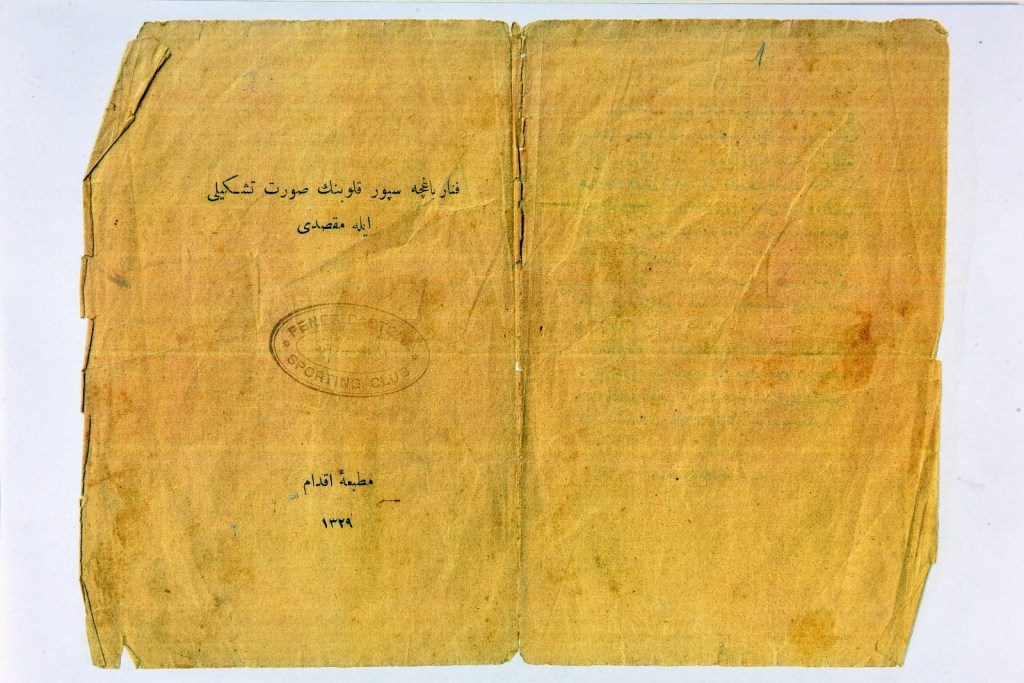 فنار باغچه سپور قلوبنك صورت تشكیلی
ایله مقصدی
SPORTING CLUB
مطبعۀ اقدام
١٣٢٩
1